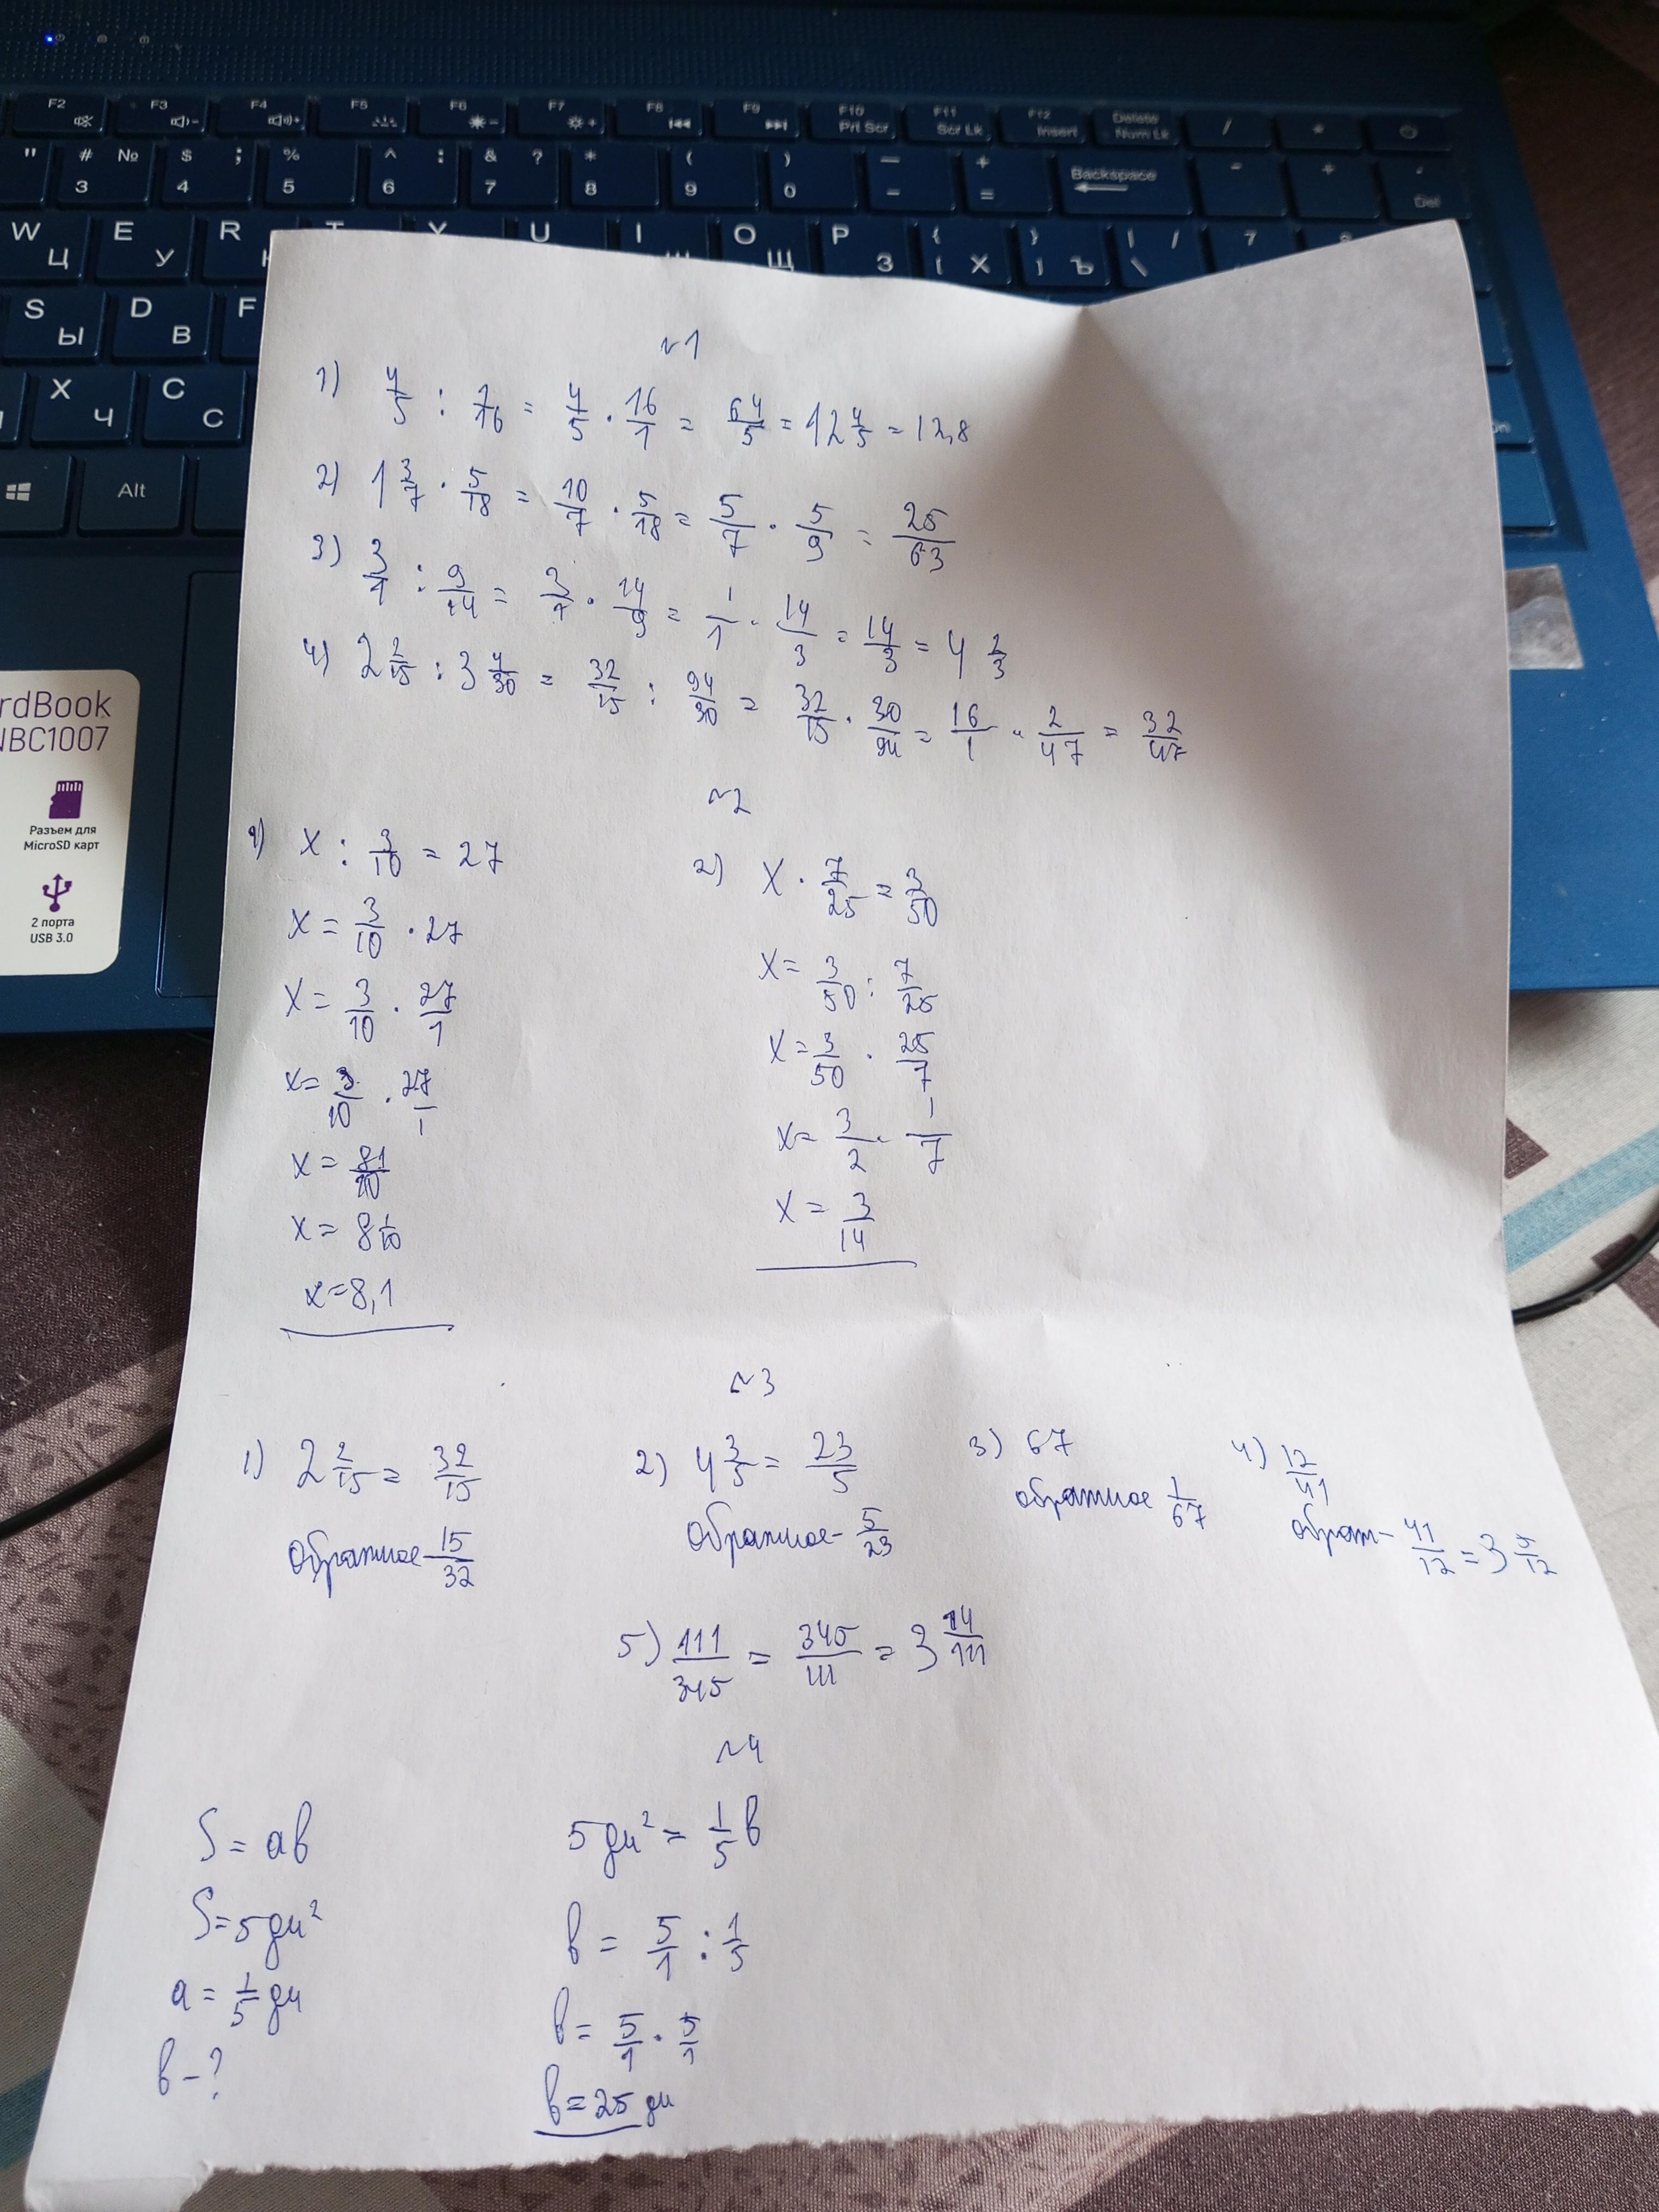 F2 F3 F4 F5 F6 F7 F8 F9 F10 Prt Scr F11 Scr Lk F12 Insert Delete Num Lk / *
" # № 3 $ ; 4 % 5 ^ : 6 & ? 7 * 8 ( 9 ) 0 — - + = Backspace - + . Del
W Ц E У R T Y U I O Щ P З { [ Х } ] Ъ | \ / 7
S Ы D В F
X Ч C С
Alt
rdBook
NBC1007
Разъем для
MicroSD карт
2 порта
USB 3.0
№1
1) 4/5 : 1/16 = 4/5 · 16/1 = 64/5 = 12 4/5 = 12,8
2) 1 3/7 · 5/18 = 10/7 · 5/18 = 5/7 · 5/9 = 25/63
3) 3/1 : 9/14 = 3/1 · 14/9 = 1/1 · 14/3 = 14/3 = 4 2/3
4) 2 2/15 : 3 4/30 = 32/15 : 94/30 = 32/15 · 30/94 = 16/1 · 2/47 = 32/47
№2
1) x : 3/10 = 27
x = 3/10 · 27
x = 3/10 · 27/1
x = 3/10 · 27/1
x = 81/10
x = 8 1/10
x = 8,1
2) x · 7/25 = 3/50
x = 3/50 : 7/25
x = 3/50 · 25/7
x = 3/2 · 1/7
x = 3/14
№3
1) 2 2/15 = 32/15
обратное - 15/32
2) 4 3/5 = 23/5
обратное - 5/23
3) 67
обратное 1/67
4) 12/41
обрат - 41/12 = 3 5/12
5) 111/345 = 345/111 = 3 14/111
№4
S = ab
S = 5 дм²
a = 1/5 дм
b - ?
5 дм² = 1/5 b
b = 5/1 : 1/5
b = 5/1 · 5/1
b = 25 дм